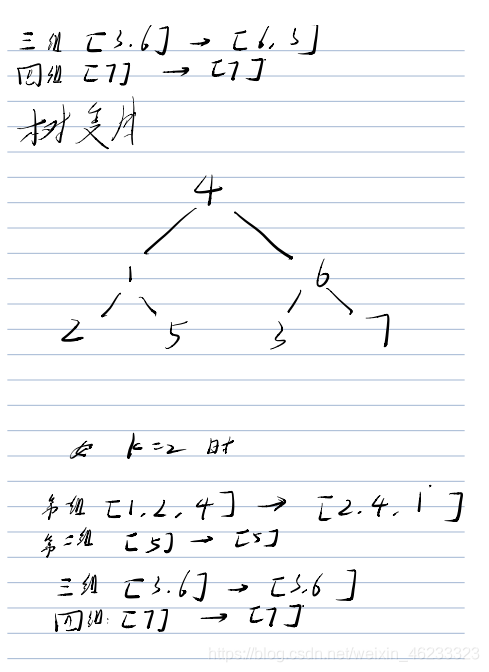 三组 [3.6] → [6,3]
四组 [7] → [7]
树变成
4
1 6
2 5 3 7
当 k=2 时
第组 [1,2,4] → [2.4,1]
第二组 [5] → [5]
三组 [3.6] → [3,6]
四组: [7] → [7]
https://blog.csdn.net/weixin_46233323